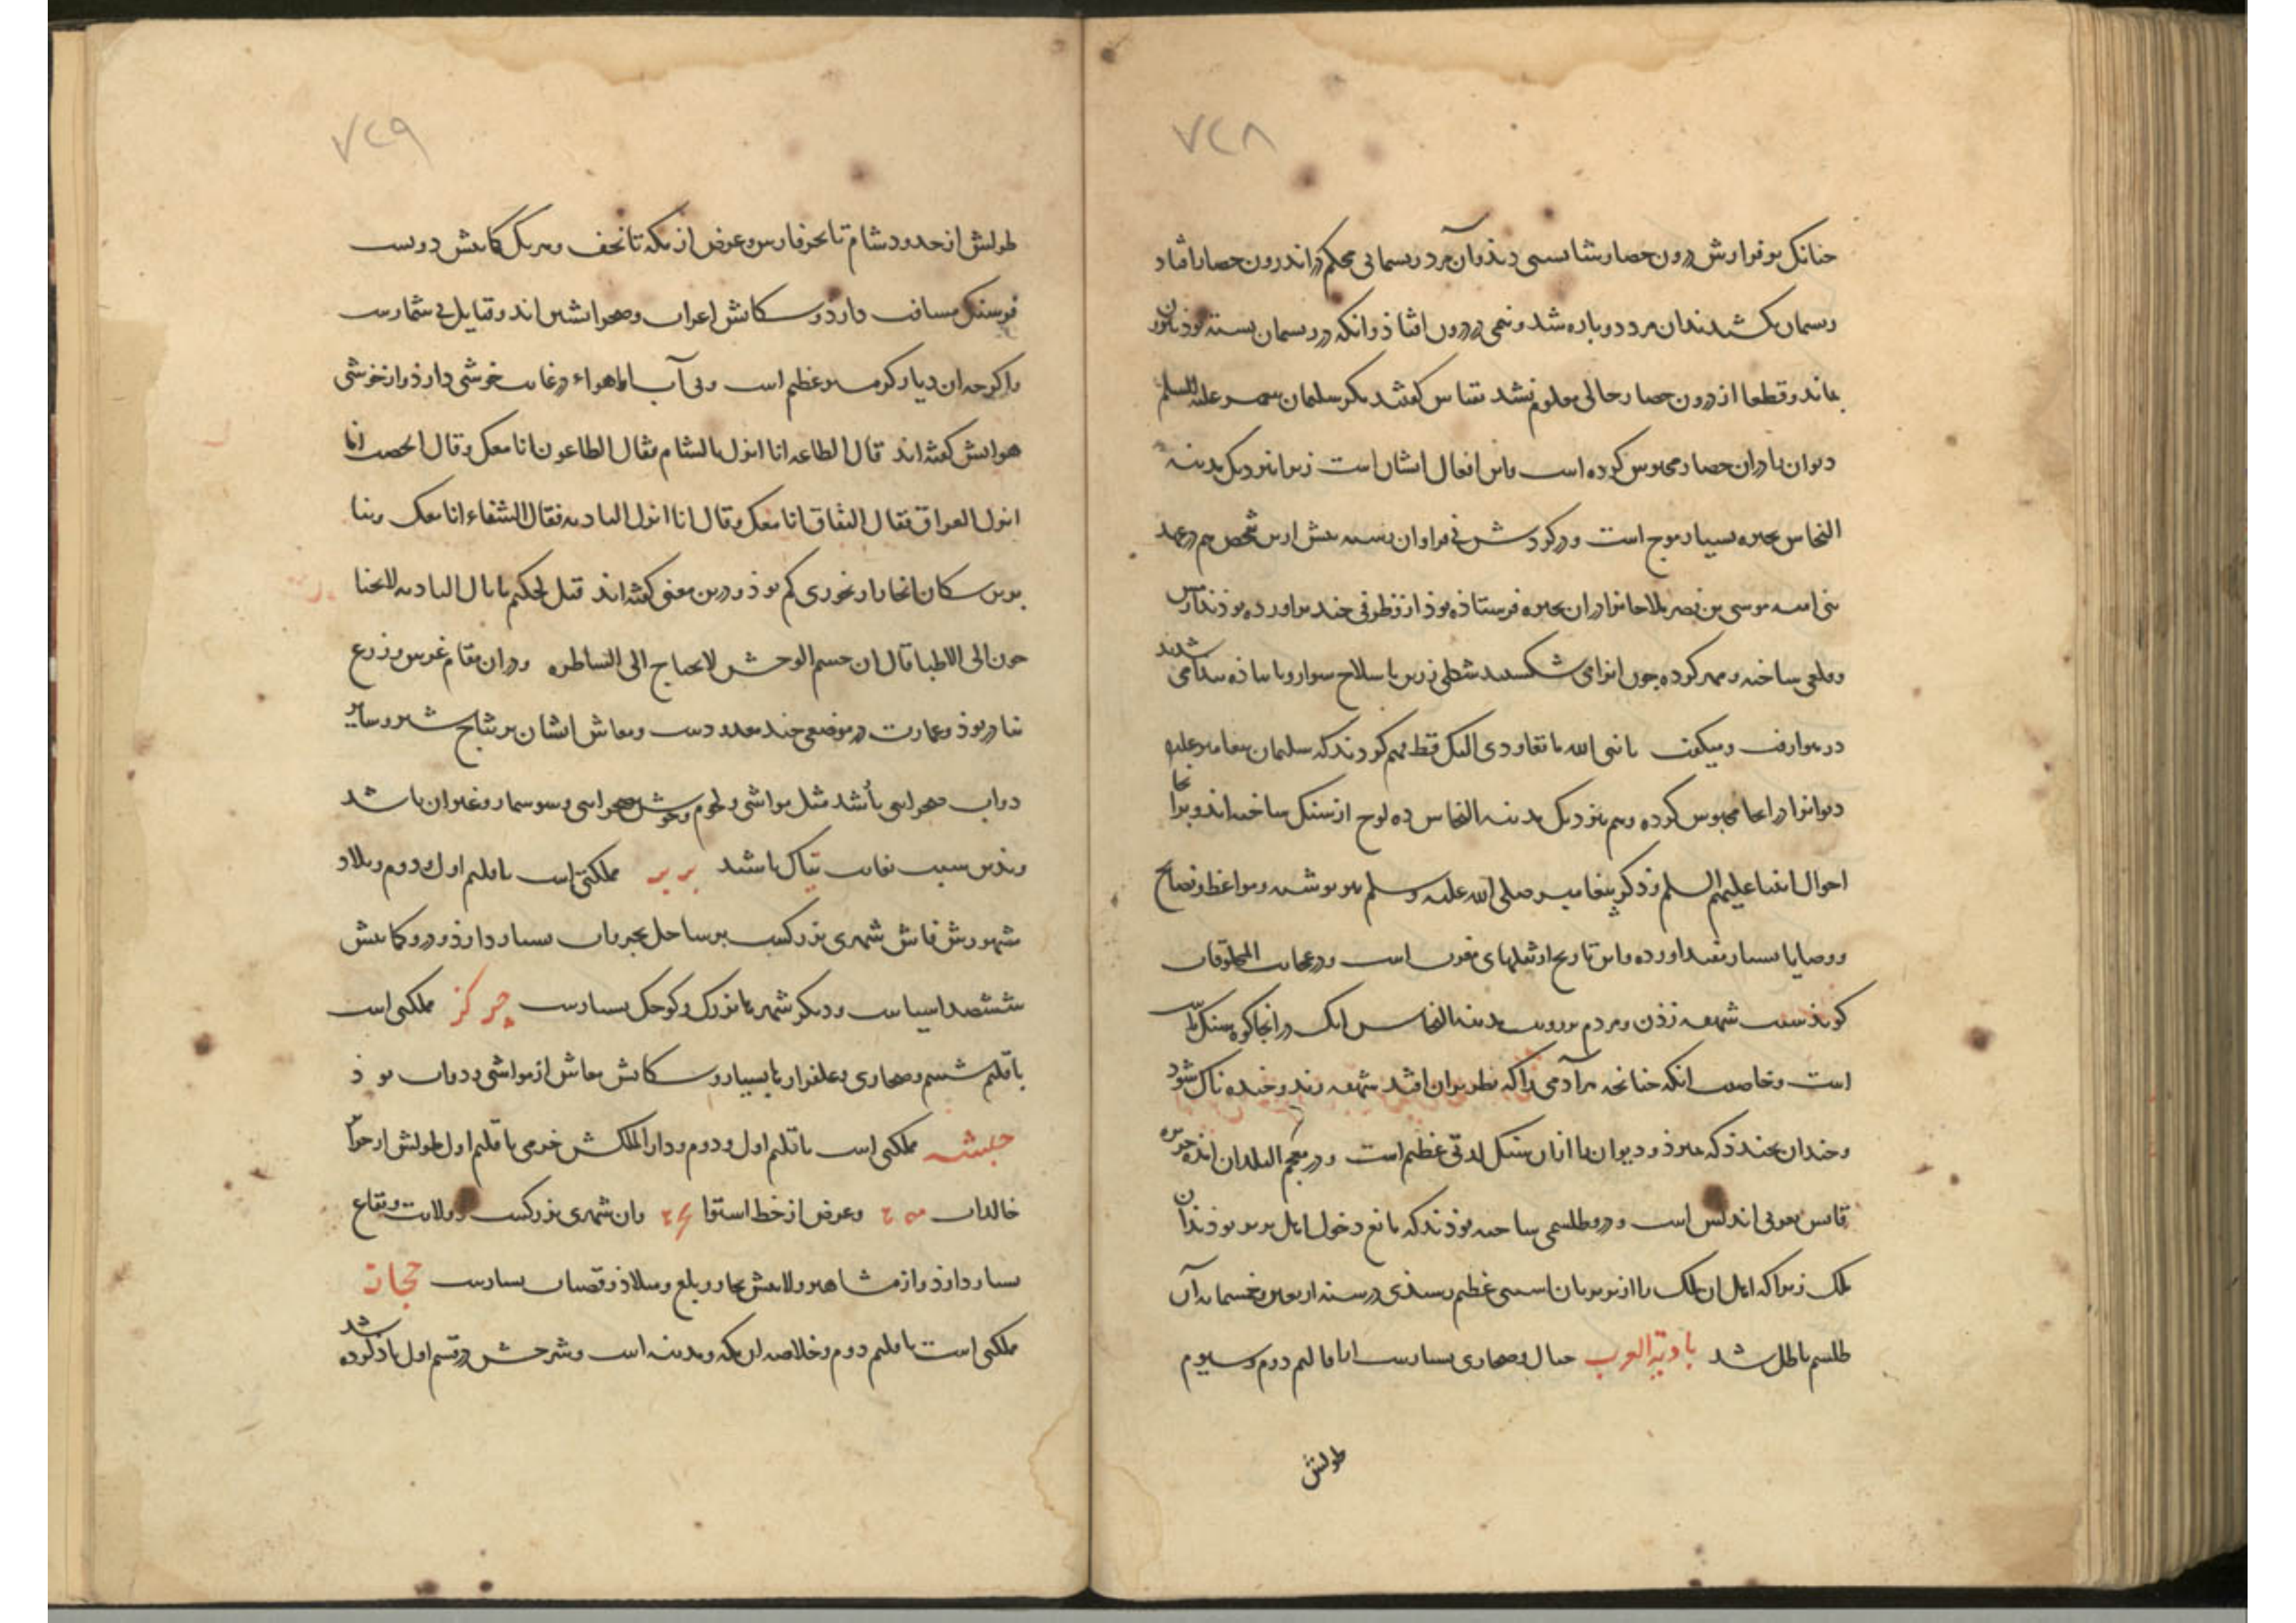 ۷۲۸
چنانک بر فرازش درون حصار شایستی دید و آن مرد ریسمانی محکم در اندرون حصار افتاد
ریسمان بکشیدند آن مرد دوپاره شد و نیمی در درون افتاد و آنکه در ریسمان بسته بود بیرون
بماند و قطعا از درون حصار حالی معلوم نشد بقیاس گفتند مگر سلیمان پیغمبر علیه السلم
دیوان را در آن حصار محبوس کرده است و این افعال ایشان است زیرا نزدیک مدینه
النحاس بحیره بسیار موج است و در گردش نی فراوان رسته پیش ازین شخصی هم در عهد
بنی امیه موسی بن نصیر ملاحانرا در آن بحیره فرستاده بود از و ظرفی چند برآورده بودند از مس
و قلعی ساخته و مهر کرده چون آنرا می شکستند شکلی زرین با سلاح سوار و یا پیاده پیدا می شدند
در هوا رفت و میگفت یا نبی الله ما نعاودی الیک قط فهم کردند که سلیمان پیغامبر علیه
دیوانرا در آنجا محبوس کرده و هم نزدیک مدینه النحاس ده لوح از سنگ ساخته اند و بر آنجا
احوال انبیا علیهم السلم و ذکر پیغامبر صلی الله علیه و سلم برو نوشته و مواعظ و نصایح
و وصایا بسیار مفید آورده و این تاریخ از نقلهای مغرب است و در عجایب المخلوقات
گوید سبب شهقه زدن و مردم بر رویت مدینه النحاس آنک در آنجا کوه سنگ باهت
است و خاصیت آنکه چنانچه هر آدمی را که نظر بر آن افتد شهقه زند و خنده ناک شود
و چندان بخندد که بمیرد و دیوان را از آن سنگ لذتی عظیم است و در معجم البلدان آمده جزیره
قادس بغربی اندلس است و درو طلسمی ساخته بودند که مانع دخول اهل بربر بودند در آن
ملک زیرا که اهل آن ملک را از بربریان آسیبی عظیم رسیدی در سنه اربعین و خمسمایه آن
طلسم باطل شد بادیة العرب جبال و صحاری بسیارست از اقالیم دوم و سیوم
طولش
۷۲۹
طولش از حدود شام تا بحر فارس و عرض از مکه تا نجف و هر یک کمابیش دویست
فرسنگ مسافت دارد و سکانش اعراب و صحرانشین اند و قبایل بی شمارست
و اگر چه آن دیار گرمسیر عظیم است و بی آب اما هواء در غایت خوشی دارد و از خوشی
هوایش گفته اند قال الطاعه انا انزل بالشام فقال الطاعون انا معک و قال الخصب انا
انزل العراق فقال النفاق انا معک و قال انا انزل البادیه فقال الشفاء انا معک و بنا
برین سکان آنجا را رنجوری کم بود و درین معنی گفته اند قیل لحکیم ما بال البادیه لا یحتا
جون الی الاطبا قال ان جسم الوحش لا یحتاج الی البیاطره و در آن مقام غرس و زرع
نادر بود و عمارت در موضعی چند معدودست و معاش ایشان بر نتایج شیر و سایر
دواب صحرایی باشد مثل مواشی و لحوم وحوش صحرایی و سوسمار و غیر آن باشد
و بدین سبب بغایت بیباک باشند بربر مملکتی است باقلیم اول و دوم و بلاد
شهورش فاش شهری بزرگست بر ساحل بحر و آب بسیار دارد و درو کمابیش
ششصد آسیاست و دیگر شهرها بزرگ و کوچک بسیارست چرکز مملکتی است
باقلیم ششم و صحاری و علفزارها بسیار و سکانش معاش از مواشی و دواب بود
حبشه مملکتی است باقلیم اول و دوم و دار الملکش جرمی باقلیم اول طولش از جزایر
خالدات و عرض از خط استوا و آن شهری بزرگست و ولایت و بقاع
بسیار دارد و از مشاهیر ولایتش بجا و زیلع و بلاد و قصبات بسیارست حجاز
مملکتی است باقلیم دوم و خلاصه آن مکه و مدینه است و شرحش در قسم اول یاد کرده شد